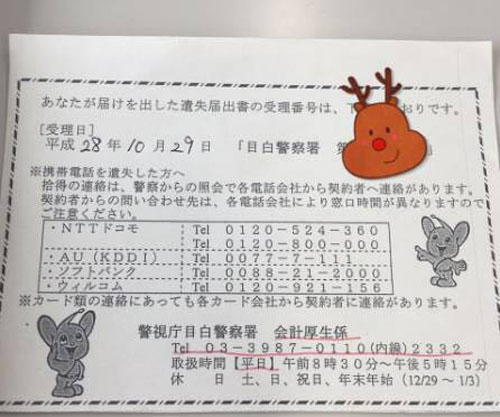 あなたが届けを出した遺失届出書の受理番号は、下 おりです。
[受理日]
平成 28 年 10 月 29 日 「目白警察署 第 」
※携帯電話を遺失した方へ
拾得の連絡は、警察からの照会で各電話会社から契約者へ連絡があります。
契約者からの問い合わせ先は、各電話会社により窓口時間が異なりますので
ご注意ください。
・NTTドコモ Tel 0120-524-360
Tel 0120-800-000
・AU(KDDI) Tel 0077-7-111
・ソフトバンク Tel 0088-21-2000
・ウィルコム Tel 0120-921-156
※カード類の連絡にあっても各カード会社から契約者に連絡があります。
警視庁目白警察署 会計厚生係
Tel 03-3987-0110(内線)2332
取扱時間【平日】午前8時30分～午後5時15分
休 日 土、日、祝日、年末年始(12/29～1/3)